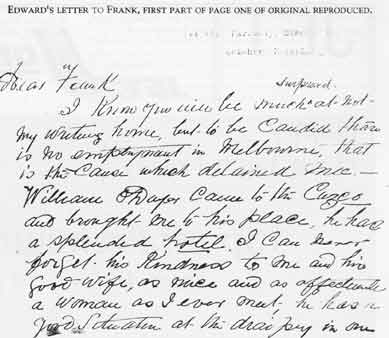 EDWARD'S LETTER TO FRANK, FIRST PART OF PAGE ONE OF ORIGINAL REPRODUCED.
Dear Frank
surprised.
I Know you will be much at not
my writing home, but to be Candid there
is no employment in Melbourne, that
is the Cause which detained me. —
William O'Dwyer Came to the Cuzco
and brought me to his place, he has
a splended hotel. I Can never
forget his Kindness to me and his
good wife, as nice and as affectionate
a woman as I ever met. he has a
good Situation at the drapery in one